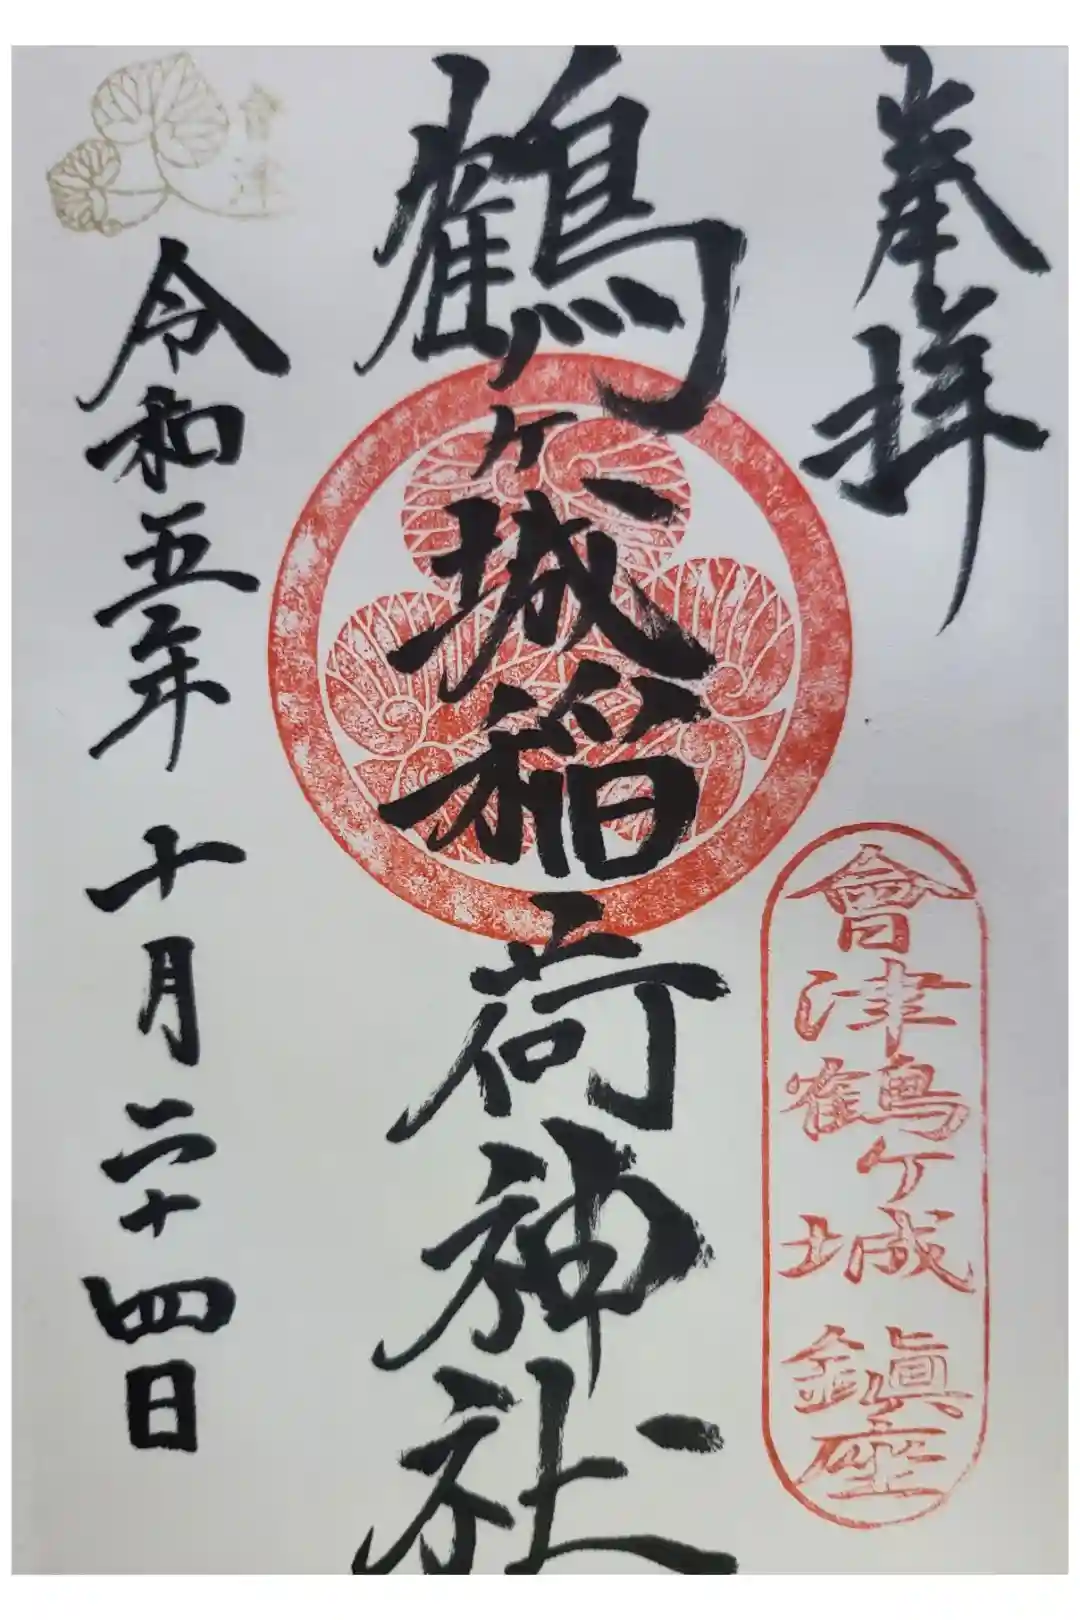 奉拝
會津鶴ヶ城鎮座
鶴ヶ城稲荷神社
會津
令和五年十月二十四日